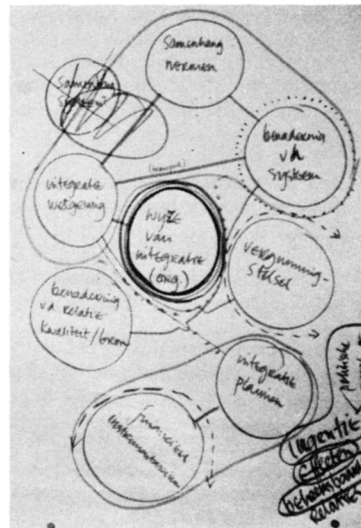 Samenhang
normen
Samenhang
systeem?
benadering
vd
systeem
(beleid)
integratie
wetgeving
wijze
van
integratie
(org.)
vergunning-
stelsel
benadering
vd relatie
kwaliteit/bron
integratie
plannen
financiële
instrumentarium
politieke
urgentie
effecten
relatie